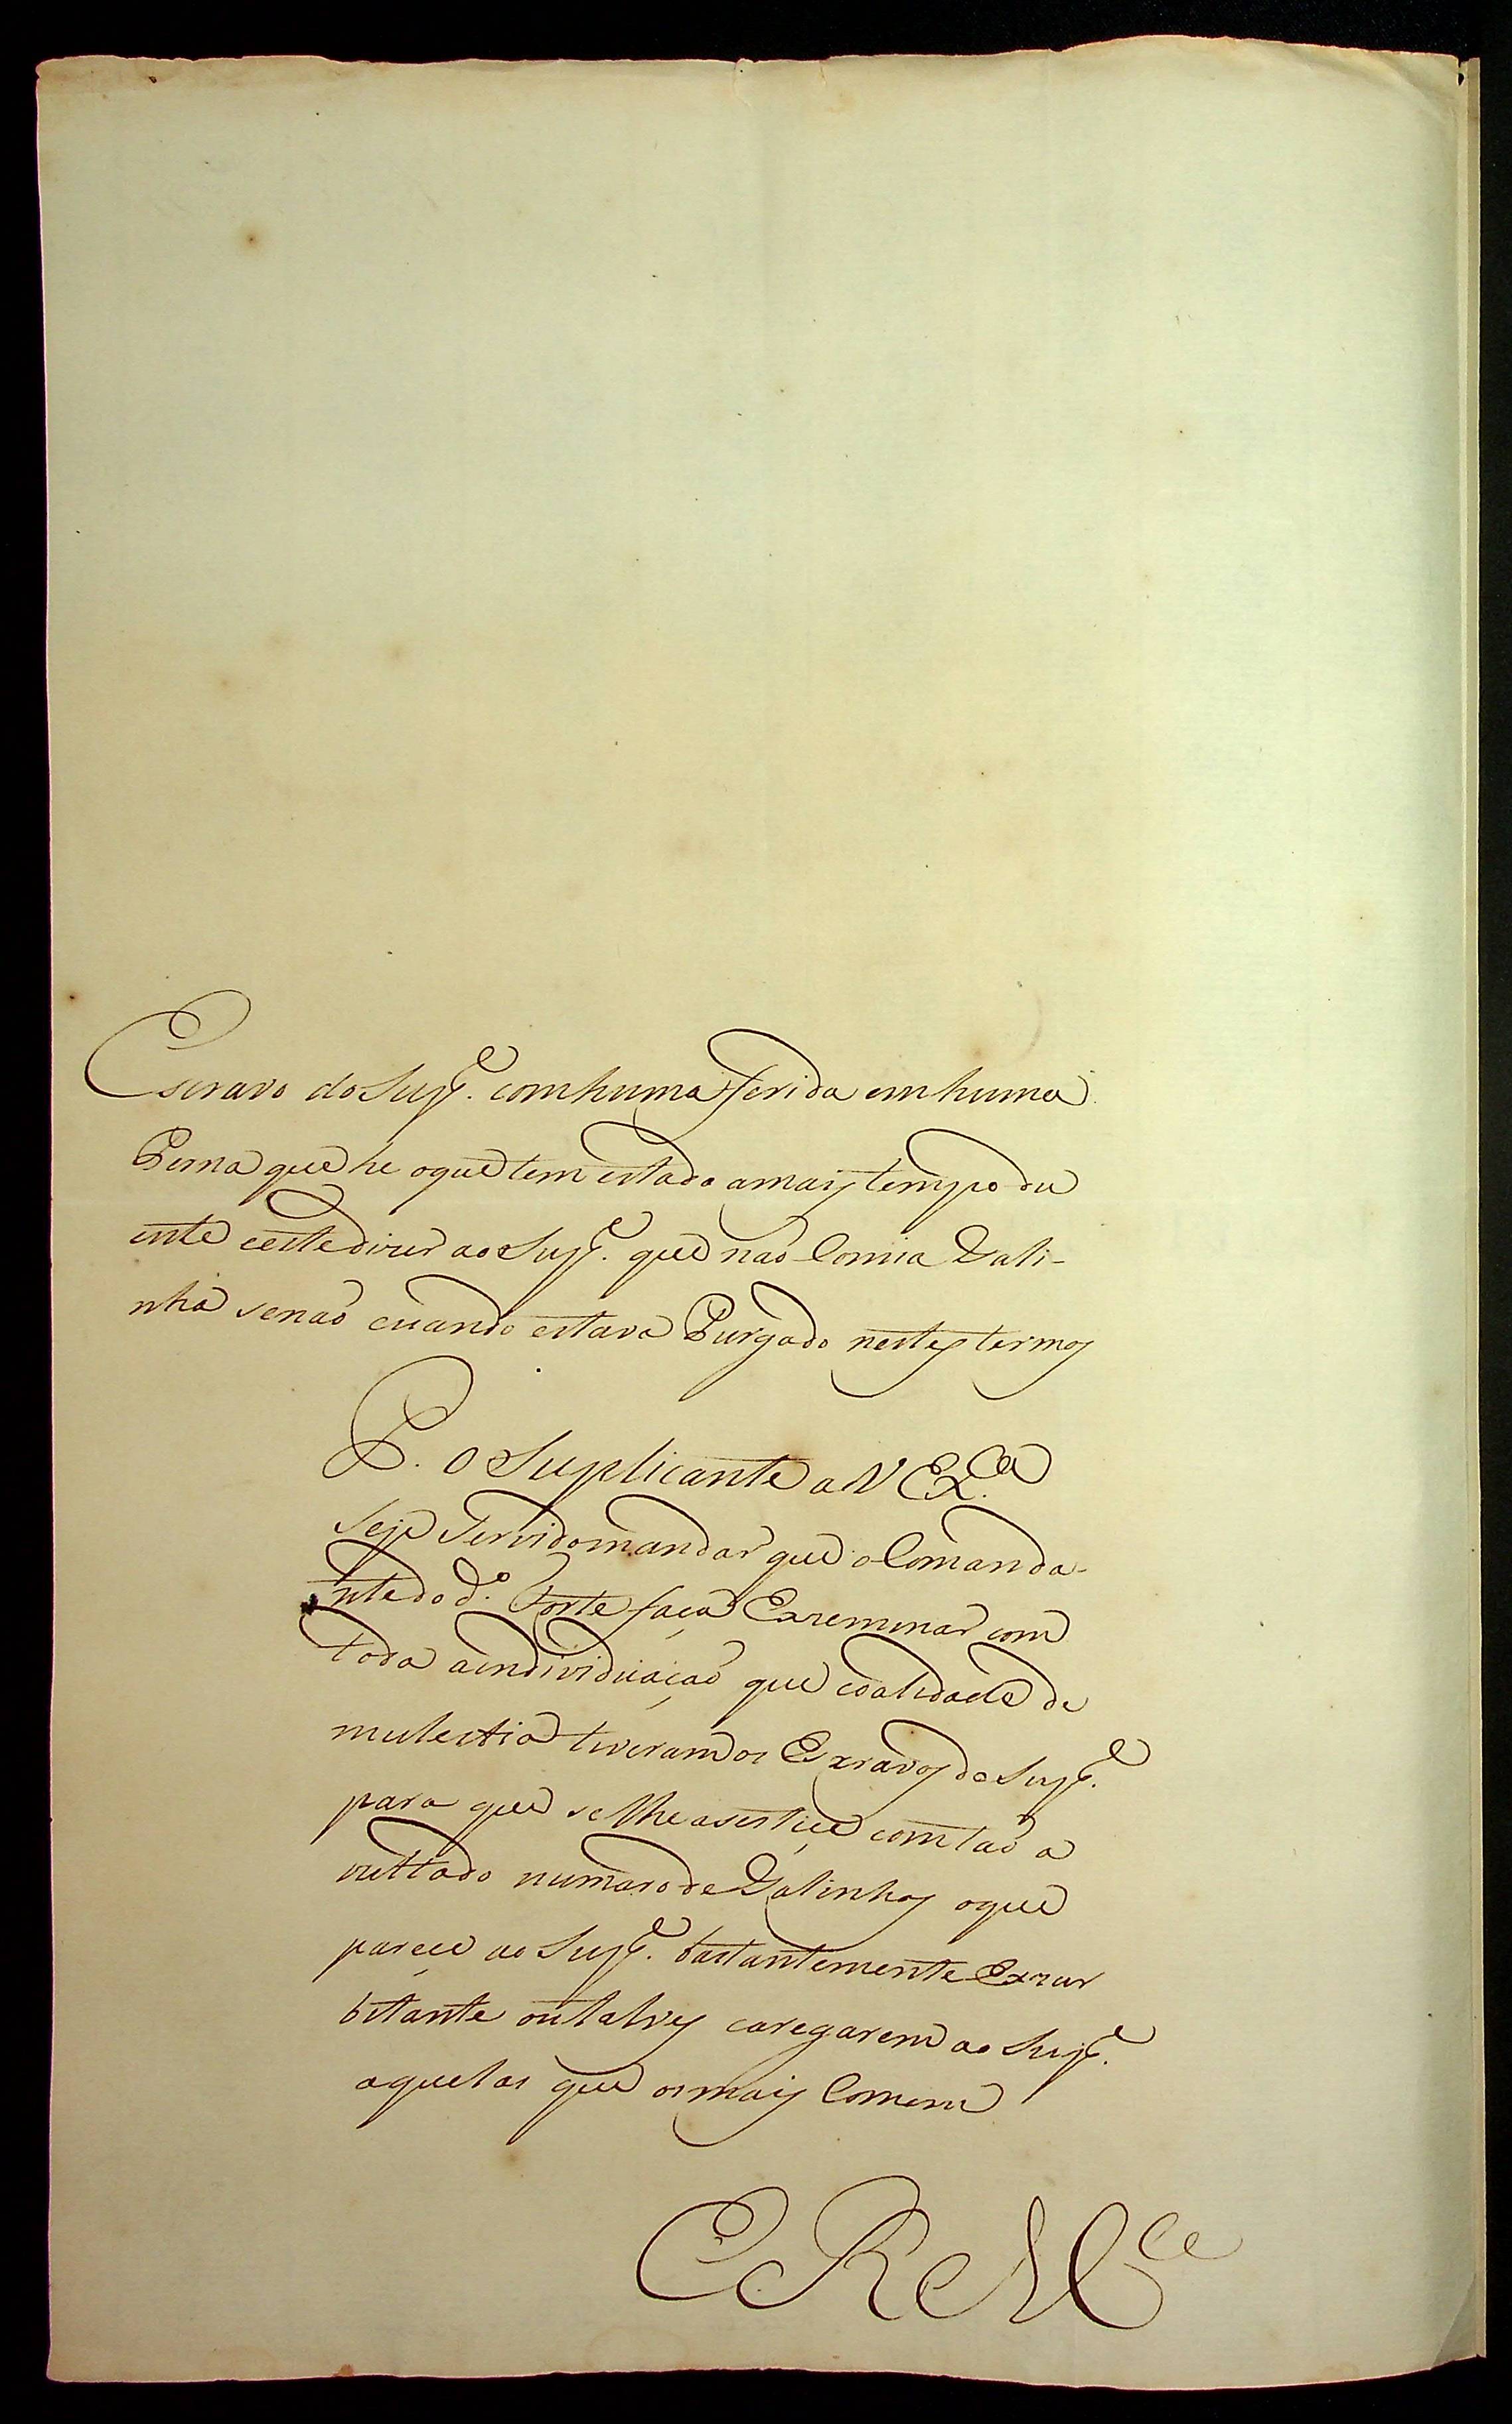 Escravo do Supp.e com huma ferida em huma
Perna que he oque tem estado amais tempo du
ente eeste dicer ao Supp.e que naõ Comia Gali-
nha senaõ cuando estava Purgado nestes termos
P. o Suplicante a V Ex.ca
Seje Servido mandar que o Comanda-
nte do d.o Forte faça Exzeminar com
toda a endividuaçaõ que coalidade de
mulestia tiveram os Exravos do Supp.e
para que se lhe asestiçe com taõ a
vultado numaro de Galinhas oque
pareçe ao Supp.e bastantemente Exzur
bitante ou talves caregarem ao Supp.e
aquelas que os mais Comem
E R M.ce